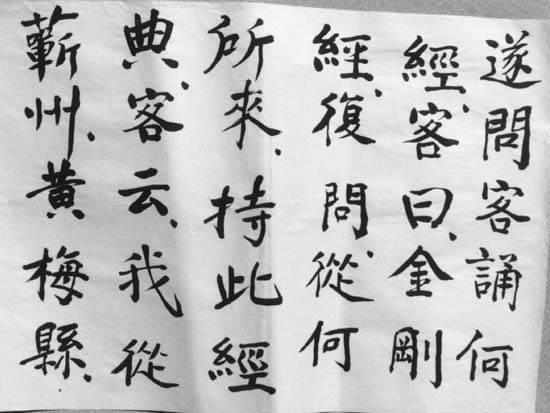 遂問客誦何
經、客曰、金剛
經、復問、從何
所來、持此經
典、客云、我從
蘄州、黃梅縣、